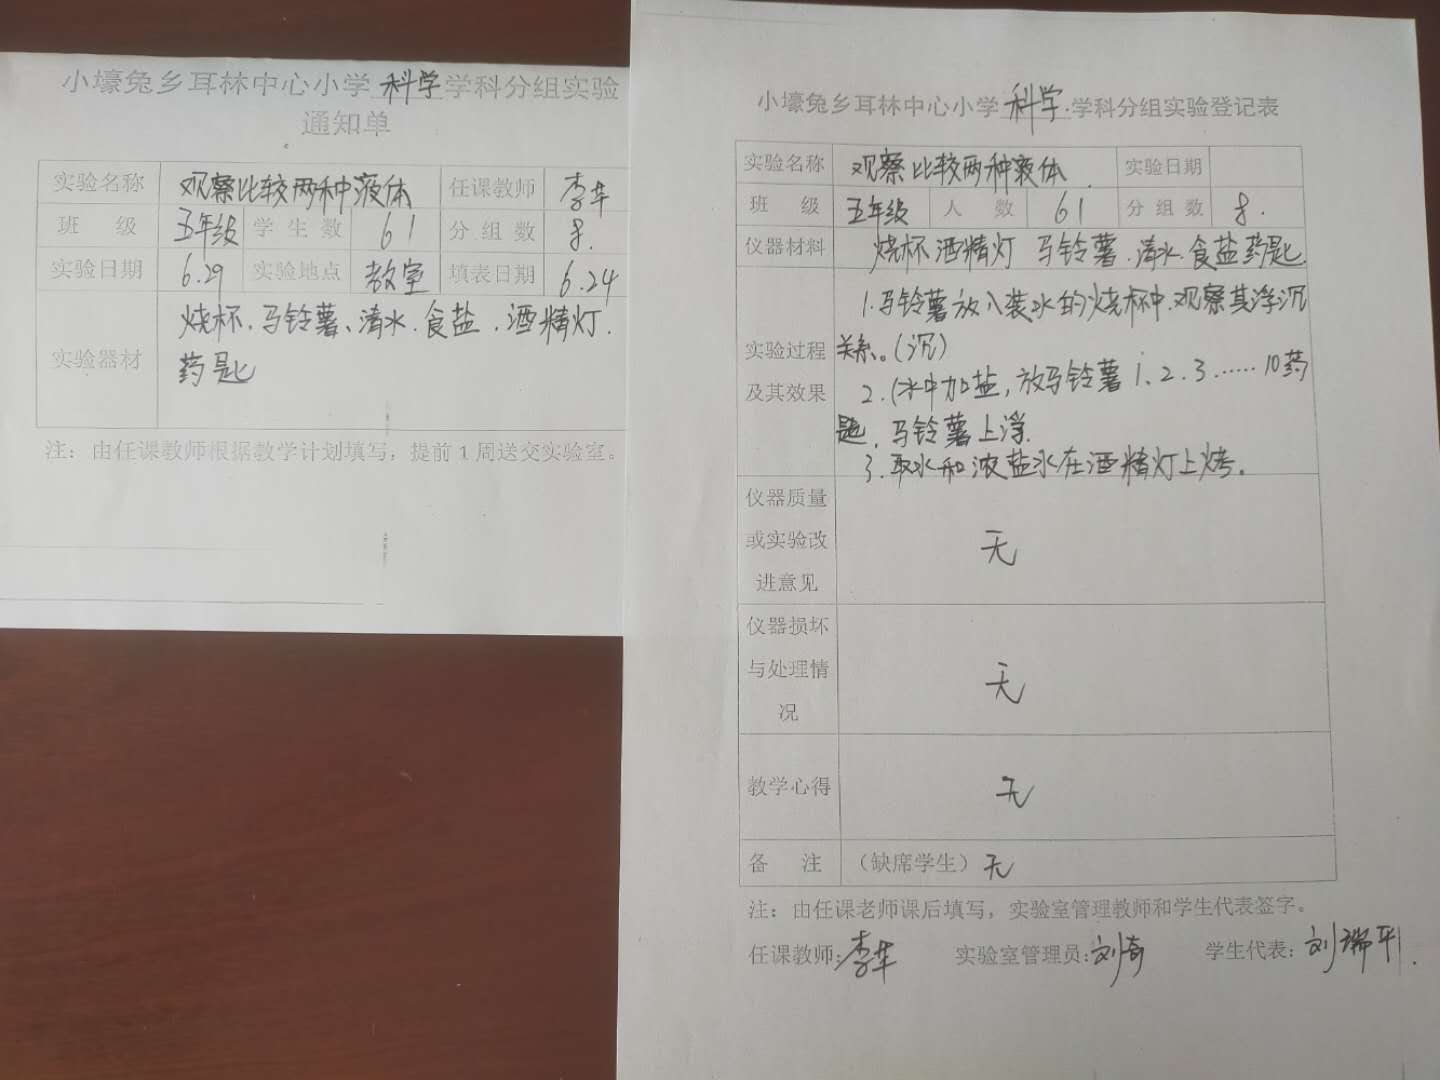 小壕兔乡耳林中心小学 科学 学科分组实验
通知单
实验名称 观察比较两种液体 任课教师 李华
班 级 五年级 学生数 61 分组数 8.
实验日期 6.29 实验地点 教室 填表日期 6.24
实验器材 烧杯.马铃薯、清水.食盐.酒精灯.
药匙
注：由任课教师根据教学计划填写，提前1周送交实验室。
小壕兔乡耳林中心小学 科学 学科分组实验登记表
实验名称 观察比较两种液体. 实验日期
班 级 五年级 人 数 61 分组数 8.
仪器材料 烧杯 酒精灯 马铃薯.清水.食盐药匙.
实验过程
及其效果
1.马铃薯放入装水的烧杯中.观察其浮沉
关系。(沉)
2.(水中加盐，放马铃薯1、2.3……10药
匙，马铃薯上浮.
3.取水和浓盐水在酒精灯上烤.
仪器质量
或实验改
进意见
无
仪器损坏
与处理情
况
无
教学心得 无
备 注 （缺席学生）无
注：由任课老师课后填写，实验室管理教师和学生代表签字。
任课教师:李华 实验室管理员:刘奇 学生代表:刘瑞平.